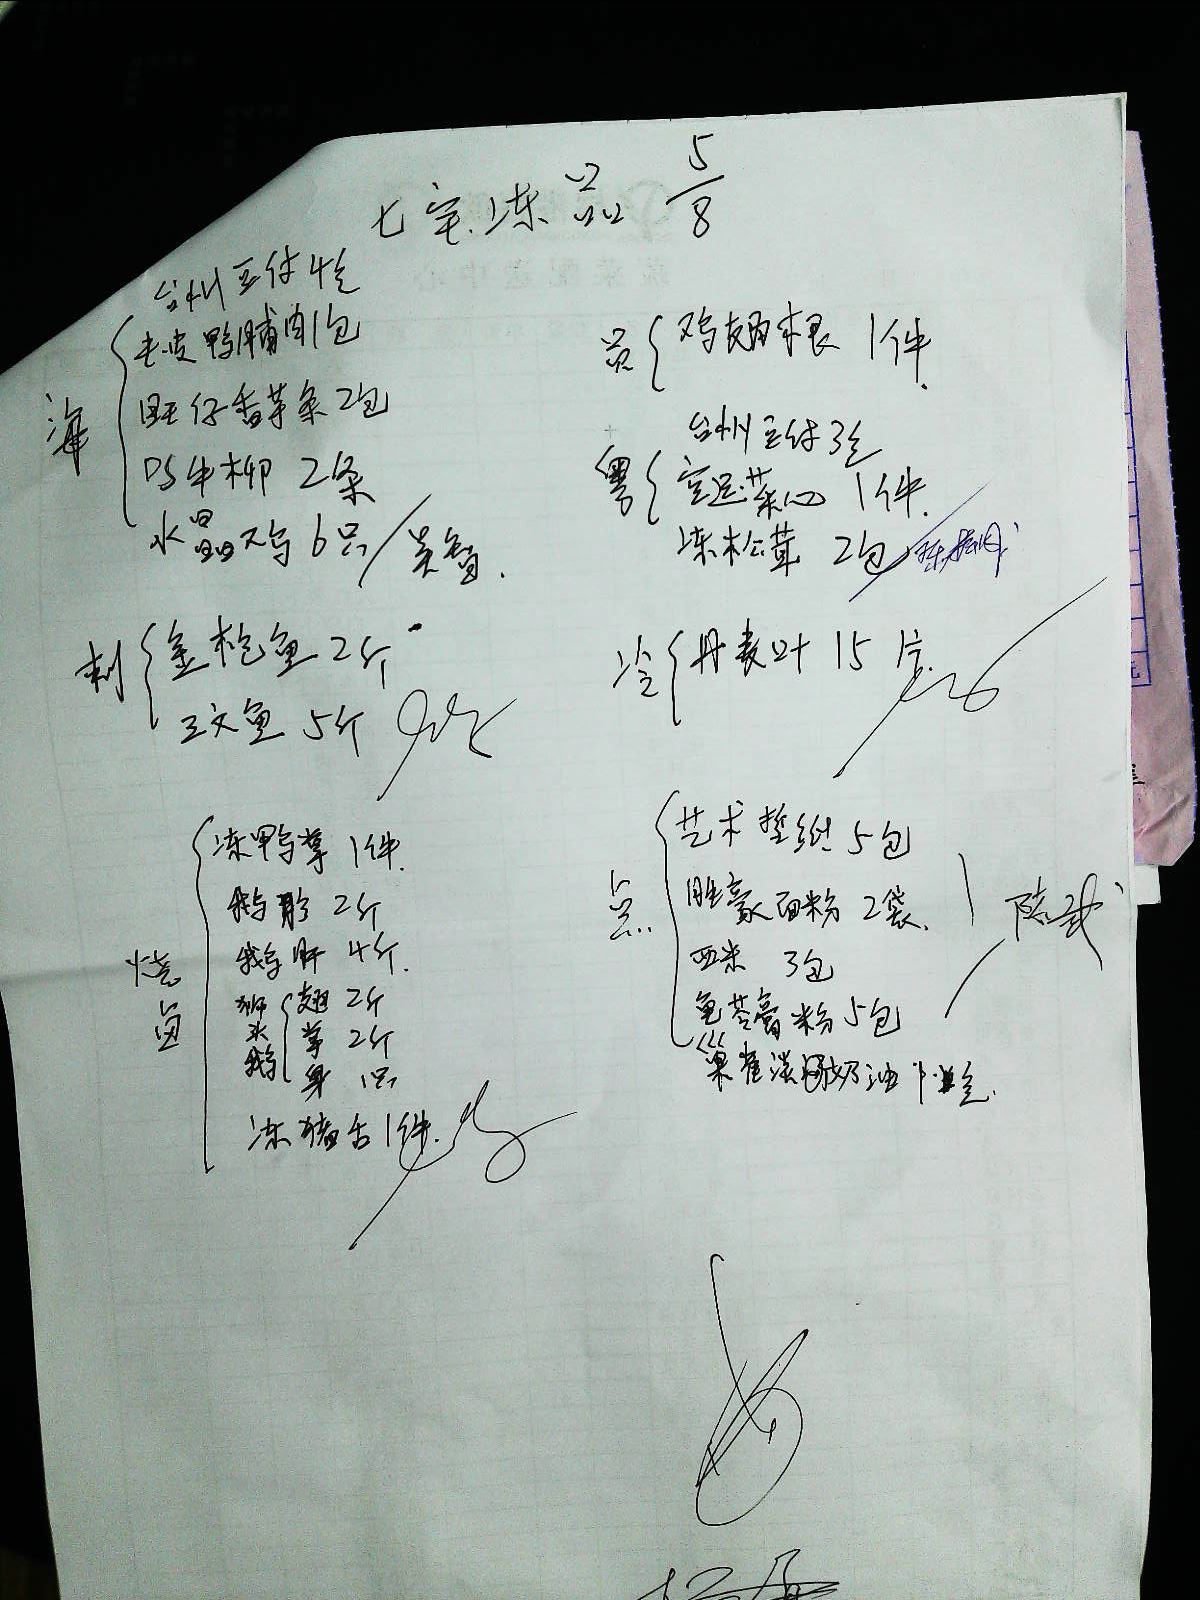 七宅冻品 5/8
台州豆付4包
毛皮鸭脯肉1包
旺仔香芋条2包
海
DS牛柳 2条
水晶鸡6只
吴智.
员 鸡翅根 1件.
台州豆付3包
粤 菜心 1件.
冻松茸 2包
刺 金枪鱼 2斤
三文鱼 5斤
冷 丹麦叶 15片
冻鸭掌 1件.
鹅肾 2斤
鹅肝 4斤.
烧卤
狮头鹅 翅 2斤
掌 2斤
身 1只
冻猪舌1件.
艺术垫纸5包
点 胜豪面粉 2袋.
陈武
西米 3包
龟苓膏粉5包
巢雀淡奶油